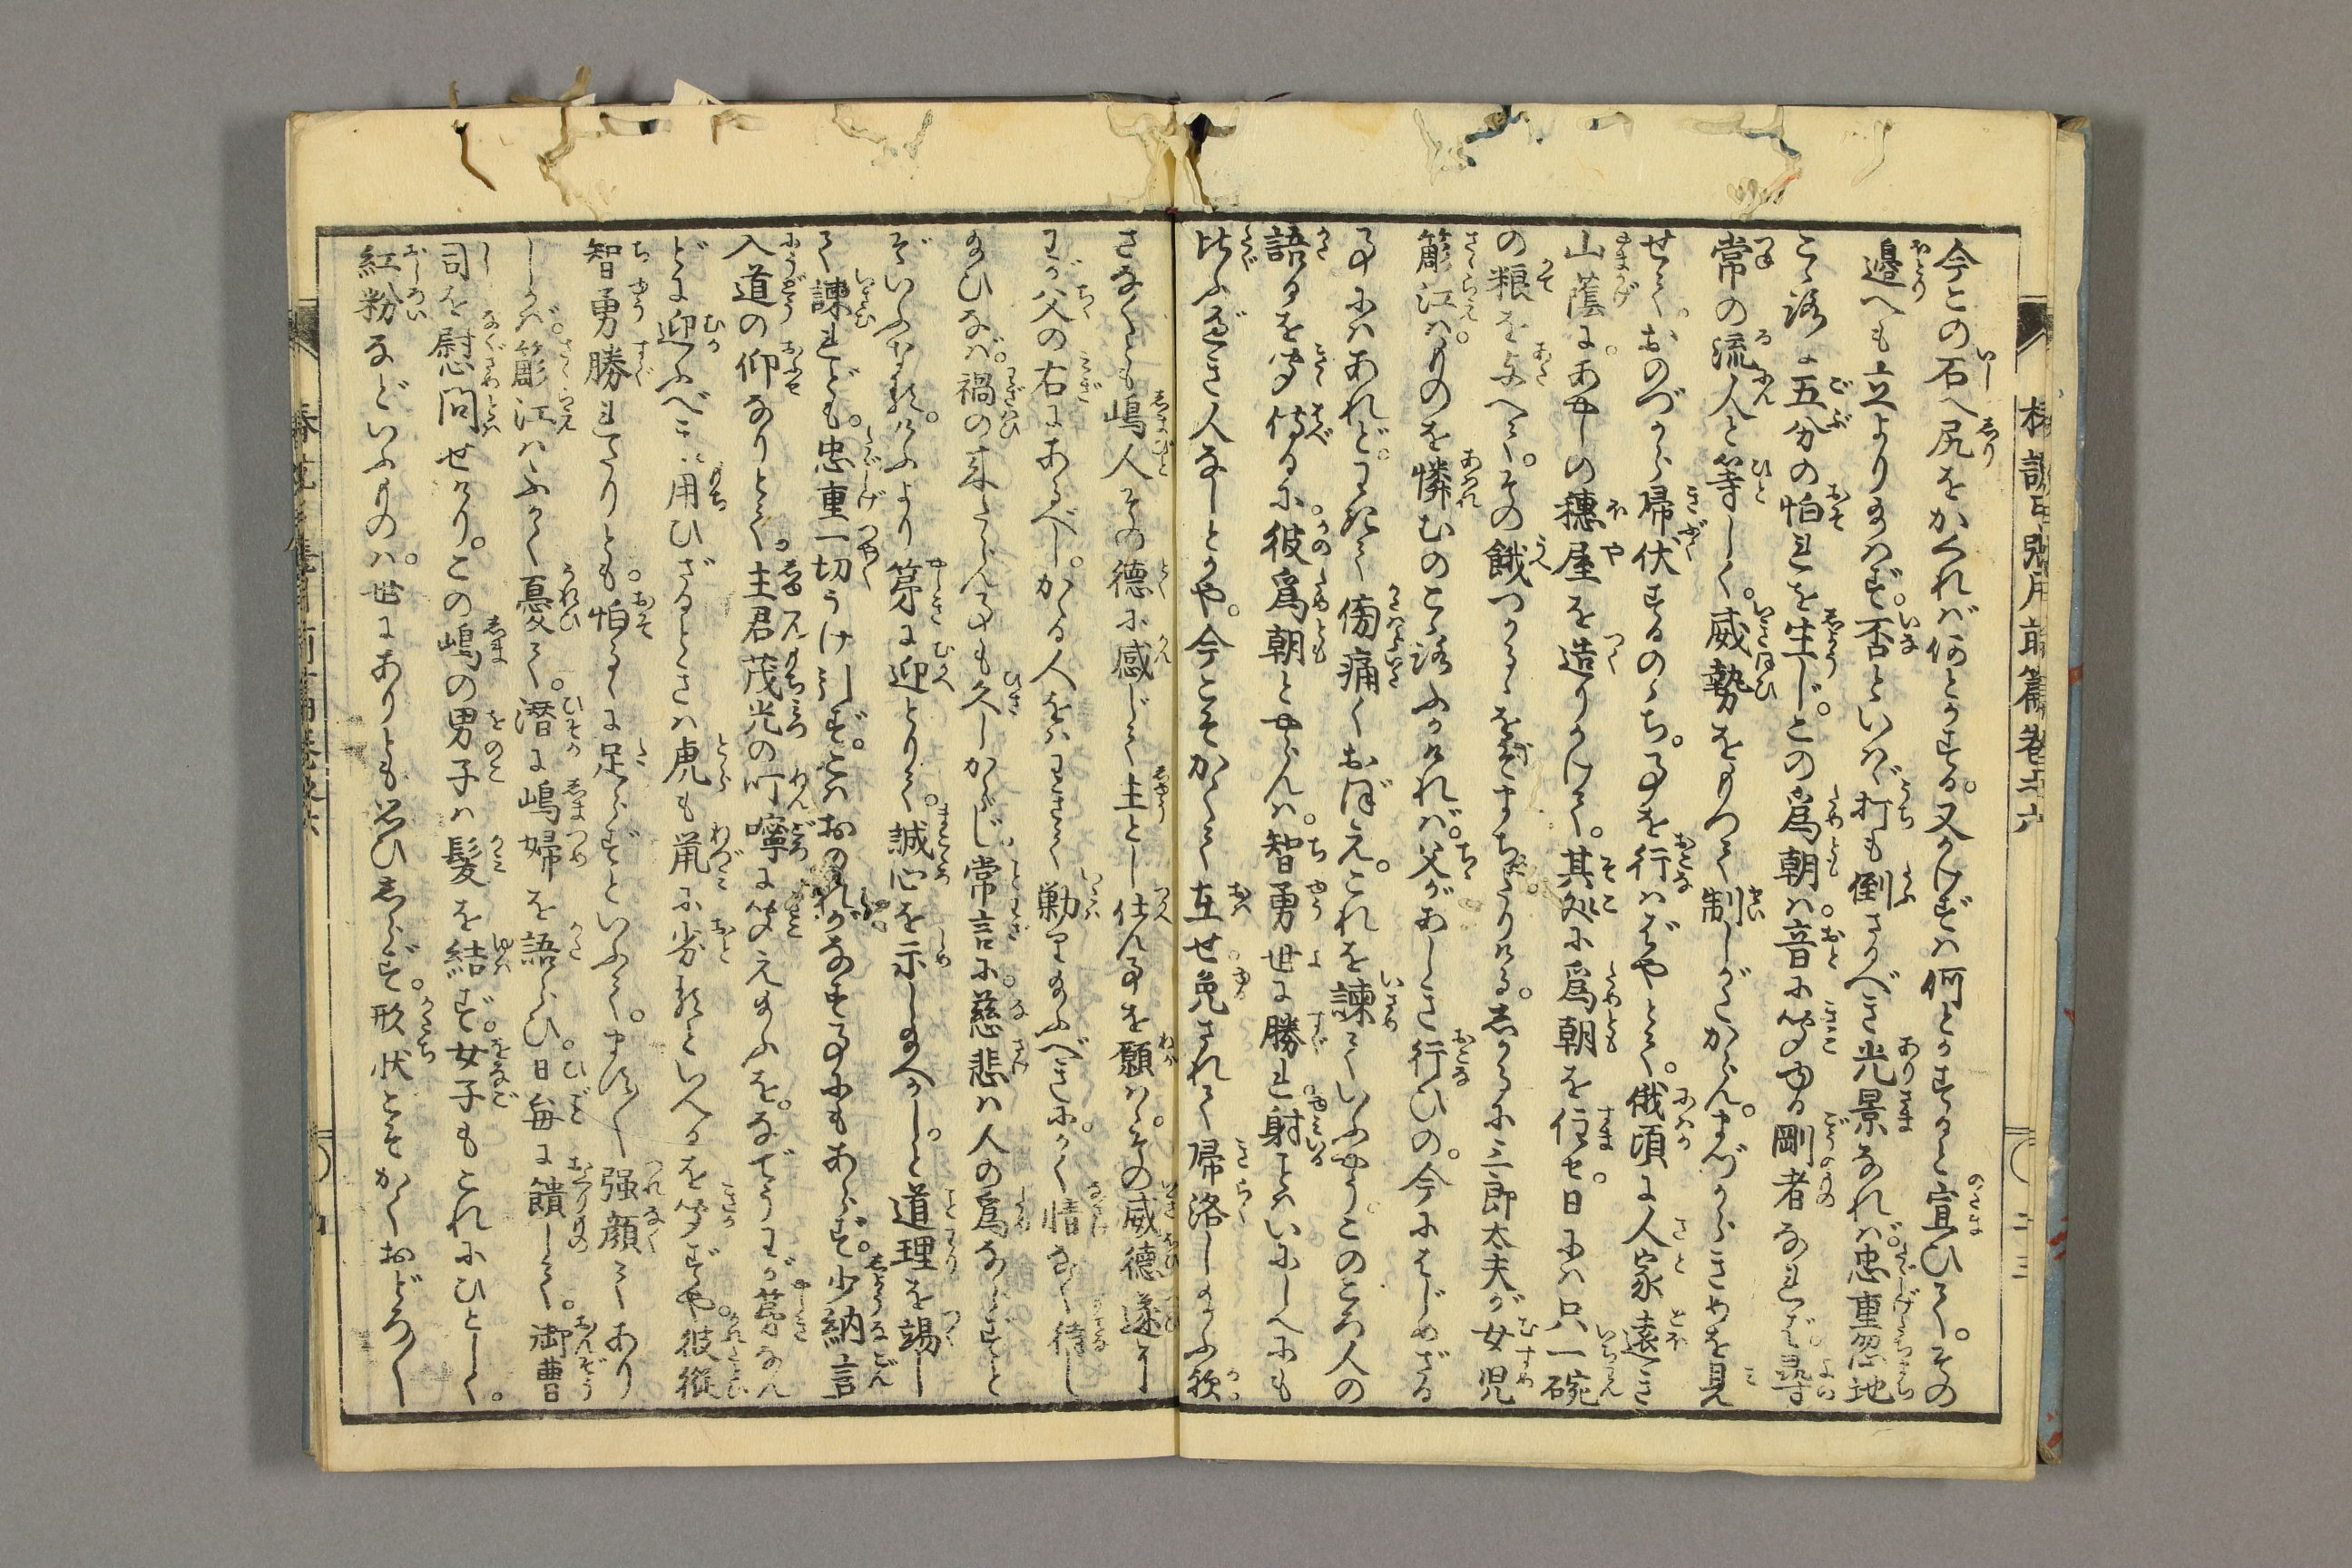 今この石へ尻をかくれば何とかする。又かけずは何とかするかと宣ひて。その
邊へも立よりまはず。否といはゞ打も倒さるべき光景なれば。忠重忽地
こゝろに五分の怕れを生じ。この爲朝は。音に聞ゆる剛者なれば。尋
常の流人と等しく。威勢をもつて制しがたからん。まづかうきめを見
せて。おのづから歸伏するのち。事を行はゞやとて。俄頃に人家遠き
山蔭に。あやしの穗屋を造りかけて。其処に爲朝を住せ。日には只一碗
の粮を与へて。その餓つかるゝをぞまちたりける。しかるに三郎太夫が女児
簓江は。ものを憐むのこゝろふかければ。父があしき行ひの。今にはじめざる
事にはあれど。わきて傍痛くおぼえ。これを諫ていふやう。このころ人の
語るを聞侍るに。彼爲朝とやらんは。智勇世に勝れ。射ことはいにしへにも
比ぶべき人なしとかや。今こそかくて在せ免されて歸洛し給ふ歟
さなくとも嶋人その德に感じて主とし仕ん事を願はゞ。その威德遂に
わが父の右にあるべし。かゝる人をばわきて勦り給ふべきに。かく情なく待し
給ひなば。禍の來たらん事も久しからじ。常言に。慈悲は人の爲ならずと
ぞいふなる。けふより第に迎とりて。誠心を示し給へかし。と道理を竭し
て諫れども。忠重一切うけ引ず。こはおのれがなす事にもあらず。少納言
入道の仰なりとて。主君茂光の叮嚀に聞え給ふを。なでうわが第なん
どに迎ふべき。用ひざるときは虎も鼠に劣るといへるを聞ずや。彼縱
智勇勝れたりとも。怕るゝに足らずといふて。まだしく强顔てあり
しかば。簓江はふかく憂て。潛に嶋婦を語らひ。日每に饋して。御曹
司を慰問せけり。この嶋の男子は髮を結ず。女子もこれにひとしく。
紅粉などいふものは。世にありとも思ひしらず。形狀こそかくおどろ〳〵し